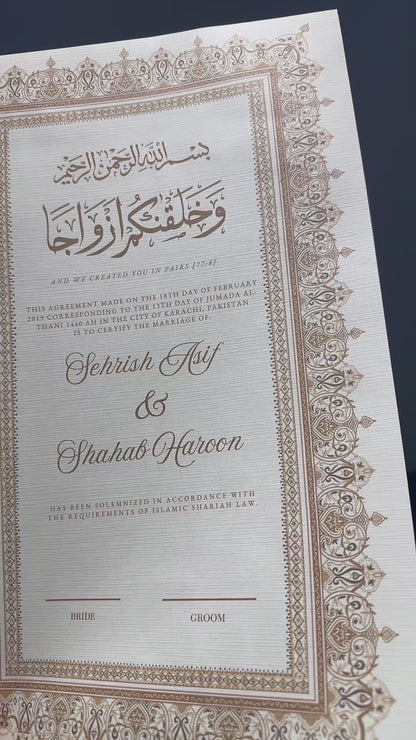 بسم الله الرحمن الرحيم
وَخَلَقْنَٰكُمْ أَزْوَٰجًا
AND WE CREATED YOU IN PAIRS [77:8]
THIS AGREEMENT MADE ON THE 18TH DAY OF FEBRUARY
2019 CORRESPONDING TO THE 13TH DAY OF JUMADA AL-
THANI 1440 AH IN THE CITY OF KARACHI, PAKISTAN
IS TO CERTIFY THE MARRIAGE OF:
Sehrish Asif
&
Shahab Haroon
HAS BEEN SOLEMNIZED IN ACCORDANCE WITH
THE REQUIREMENTS OF ISLAMIC SHARIAH LAW.
BRIDE GROOM